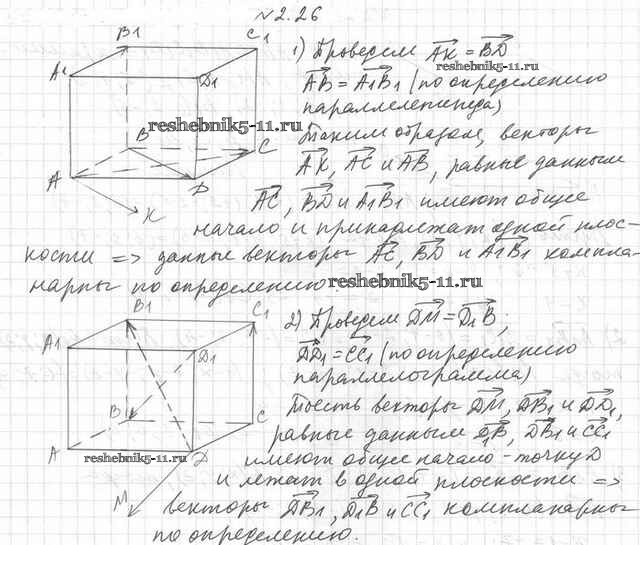 №2.26
B1
C1
A1
D1
B
C
A
D
K
1) Проведем AK = BD
reshebnik5-11.ru
AB = A1B1 (по определению
параллелепипеда)
reshebnik5-11.ru
Таким образом, векторы
AK, AC и AB, равные данным
AC, BD и A1B1 имеют общее
начало и принадлежат одной плос-
кости => данные векторы AC, BD и A1B1 компла-
нарны по определению.
reshebnik5-11.ru
B1
C1
A1
D1
B
C
A
D
M
reshebnik5-11.ru
2) Проведем DM = D1B;
DD1 = CC1 (по определению
параллелограмма)
Тоесть векторы DM, DB1 и DD1,
равные данным D1B, DB1 и CC1
имеют общее начало - точку D
и лежат в одной плоскости =>
векторы DB1, D1B и CC1 компланарны
по определению.